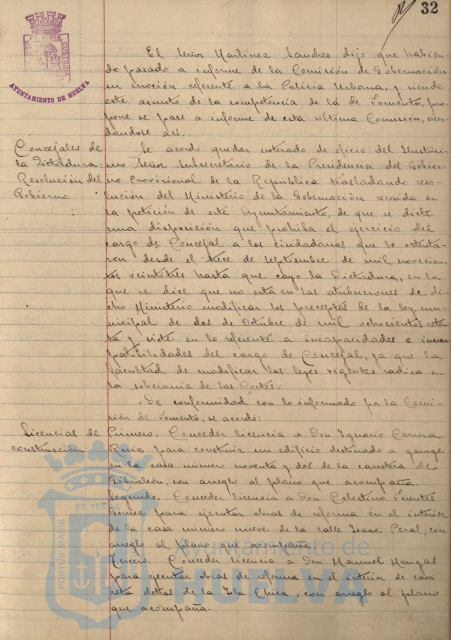 32
AYUNTAMIENTO DE HUELVA
El Señor Martinez Sanchez dijo que habien-
do pasado a informe de la Comisión de Gobernación
su moción referente a la Policia Urbana, y siendo
este asunto de la competencia de la de Fomento, pro-
pone se pase a informe de esta ultima Comisión, acor-
dandose asi.
Concejales de
la Dictadura.
Resolución del
Gobierno
Se acordo quedar enterado de oficio del Ilustrisi-
mo Señor Subsecretario de la Presidencia del Gobier-
no Provisional de la Republica trasladando reso-
lución del Ministerio de la Gobernación recaida en
la petición de este Ayuntamiento, de que se dicte
una disposición que prohiba el ejercicio del
cargo de Concejal a los ciudadanos que lo ostenta-
ron desde el trece de septiembre de mil novecien-
tos veintitres hasta que cayo la Dictadura, en la
que se dice que no esta en las atribuciones de di-
cho Ministerio modificar los preceptos de la ley mu-
nicipal de dos de Octubre de mil ochocientos seten-
ta y siete en lo referente a incapacidades e incom-
patibilidades del cargo de Concejal, ya que la
facultad de modificar las leyes vigentes radica en
la soberania de las Cortes.
De conformidad con lo informado por la Comi-
sión de Fomento, se acordo:
Licencias de
construcción
Primero. Conceder licencia a Don Ignacio Carrera
Ruiz, para construir un edificio destinado a garage,
en la casa número noventa y dos de la carretera de
Gibraleon, con arreglo al plano que acompaña.
Segundo. Conceder licencia a Don Celestino Fuentes
Gomez para ejecutar obras de reforma en el interior
de la casa número nueve de la calle Isaac Peral, con
arreglo al plano que acompaña.
Tercero. Conceder licencia a Don Manuel
para ejecutar obras de reforma en el interior de casa
detras de la Isla Chica, con arreglo al plano
que acompaña.
Ayuntamiento de
HUELVA